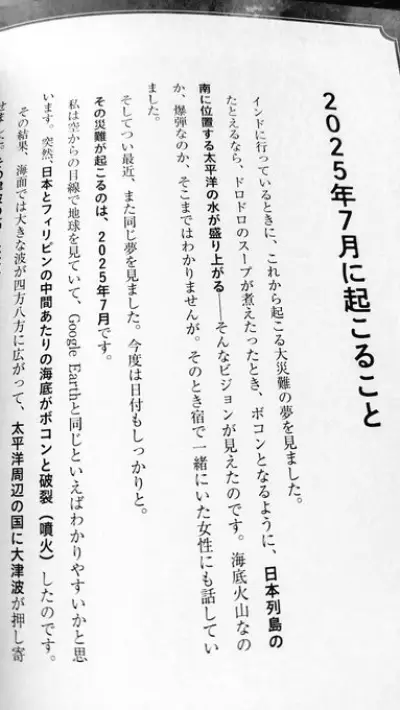 2025年7月に起こること
インドに行っているときに、これから起こる大災難の夢を見ました。
たとえるなら、ドロドロのスープが煮えたったとき、ボコンとなるように、日本列島の
南に位置する太平洋の水が盛り上がる――そんなビジョンが見えたのです。海底火山なの
か、爆弾なのか、そこまではわかりませんが。そのとき宿で一緒にいた女性にも話してい
ました。
そしてつい最近、また同じ夢を見ました。今度は日付もしっかりと。
その災難が起こるのは、2025年7月です。
私は空からの目線で地球を見ていて、Google Earthと同じといえばわかりやすいかと思
います。突然、日本とフィリピンの中間あたりの海底がボコンと破裂（噴火）したのです。
その結果、海面では大きな波が四方八方に広がって、太平洋周辺の国に大津波が押し寄